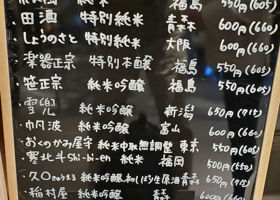 福島 550円(605)
田酒 特別純米 青森 600円(660)
しょうのさと 特別純米 大阪 600円(660)
楽器正宗 特別本醸 福島 550円(605)
笹正宗 純米吟醸 福島 550円(605)
雪兜 純米吟醸 新潟 650円(715)
帆波 純米吟醸 富山 600円(660)
・おくのかみ屋守 純米中取無調整 東京 550円(605)
・寒北斗Shi-bi-en 純米 福岡 500円(550)
・久〇 純米吟醸 生原酒 青森 650円(715)
・稲村屋 純米吟醸 青森